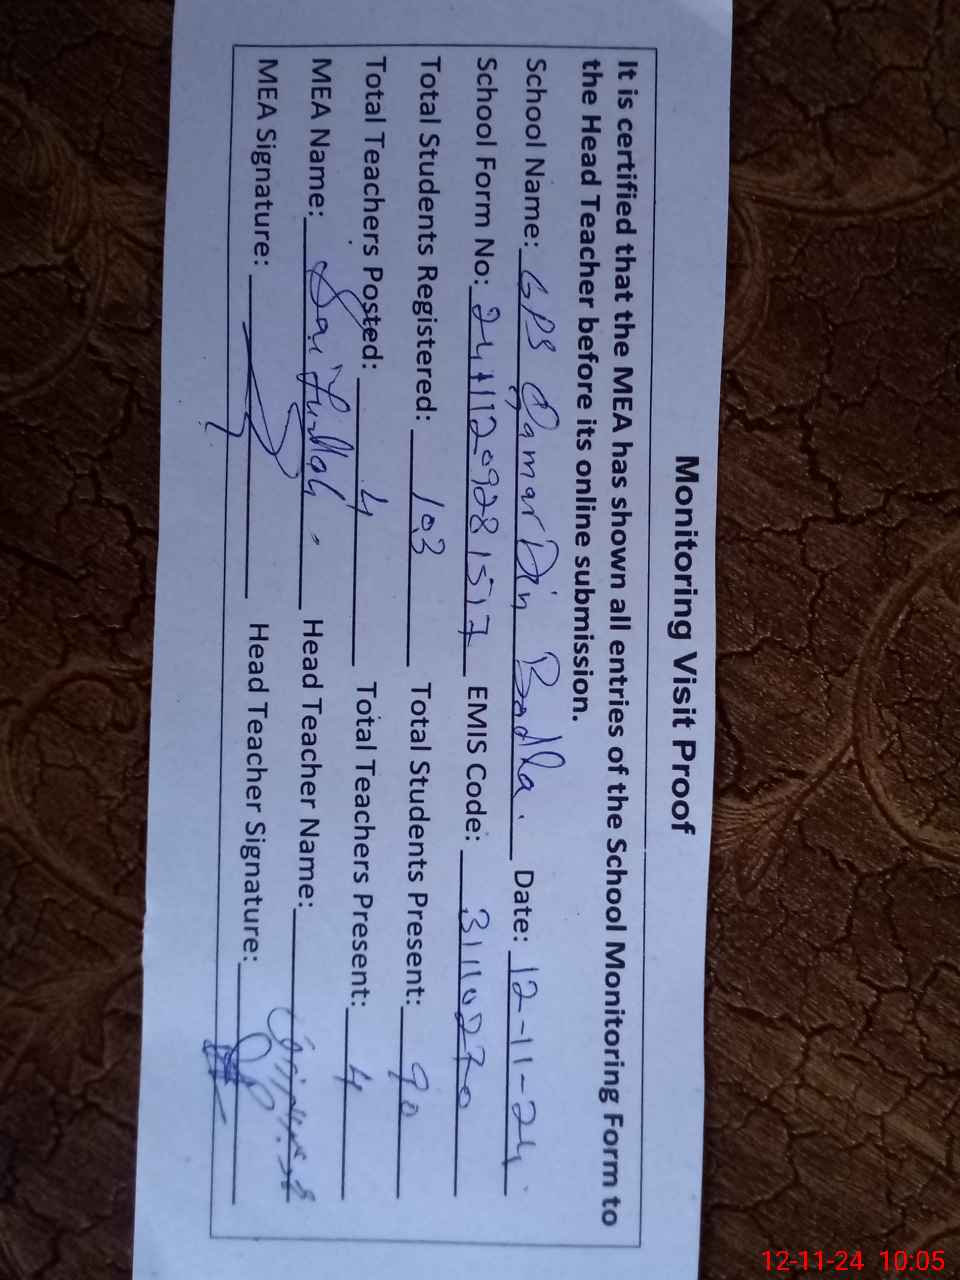 Monitoring Visit Proof
It is certified that the MEA has shown all entries of the School Monitoring Form to
the Head Teacher before its online submission.
School Name: GPS Qamar Din Bodla. Date: 12-11-24
School Form No: 24111209281517 EMIS Code: 31110270
Total Students Registered: 103 Total Students Present: 90
Total Teachers Posted: 4 Total Teachers Present: 4
MEA Name: Saifullah Head Teacher Name:
MEA Signature: Head Teacher Signature:
12-11-24 10:05